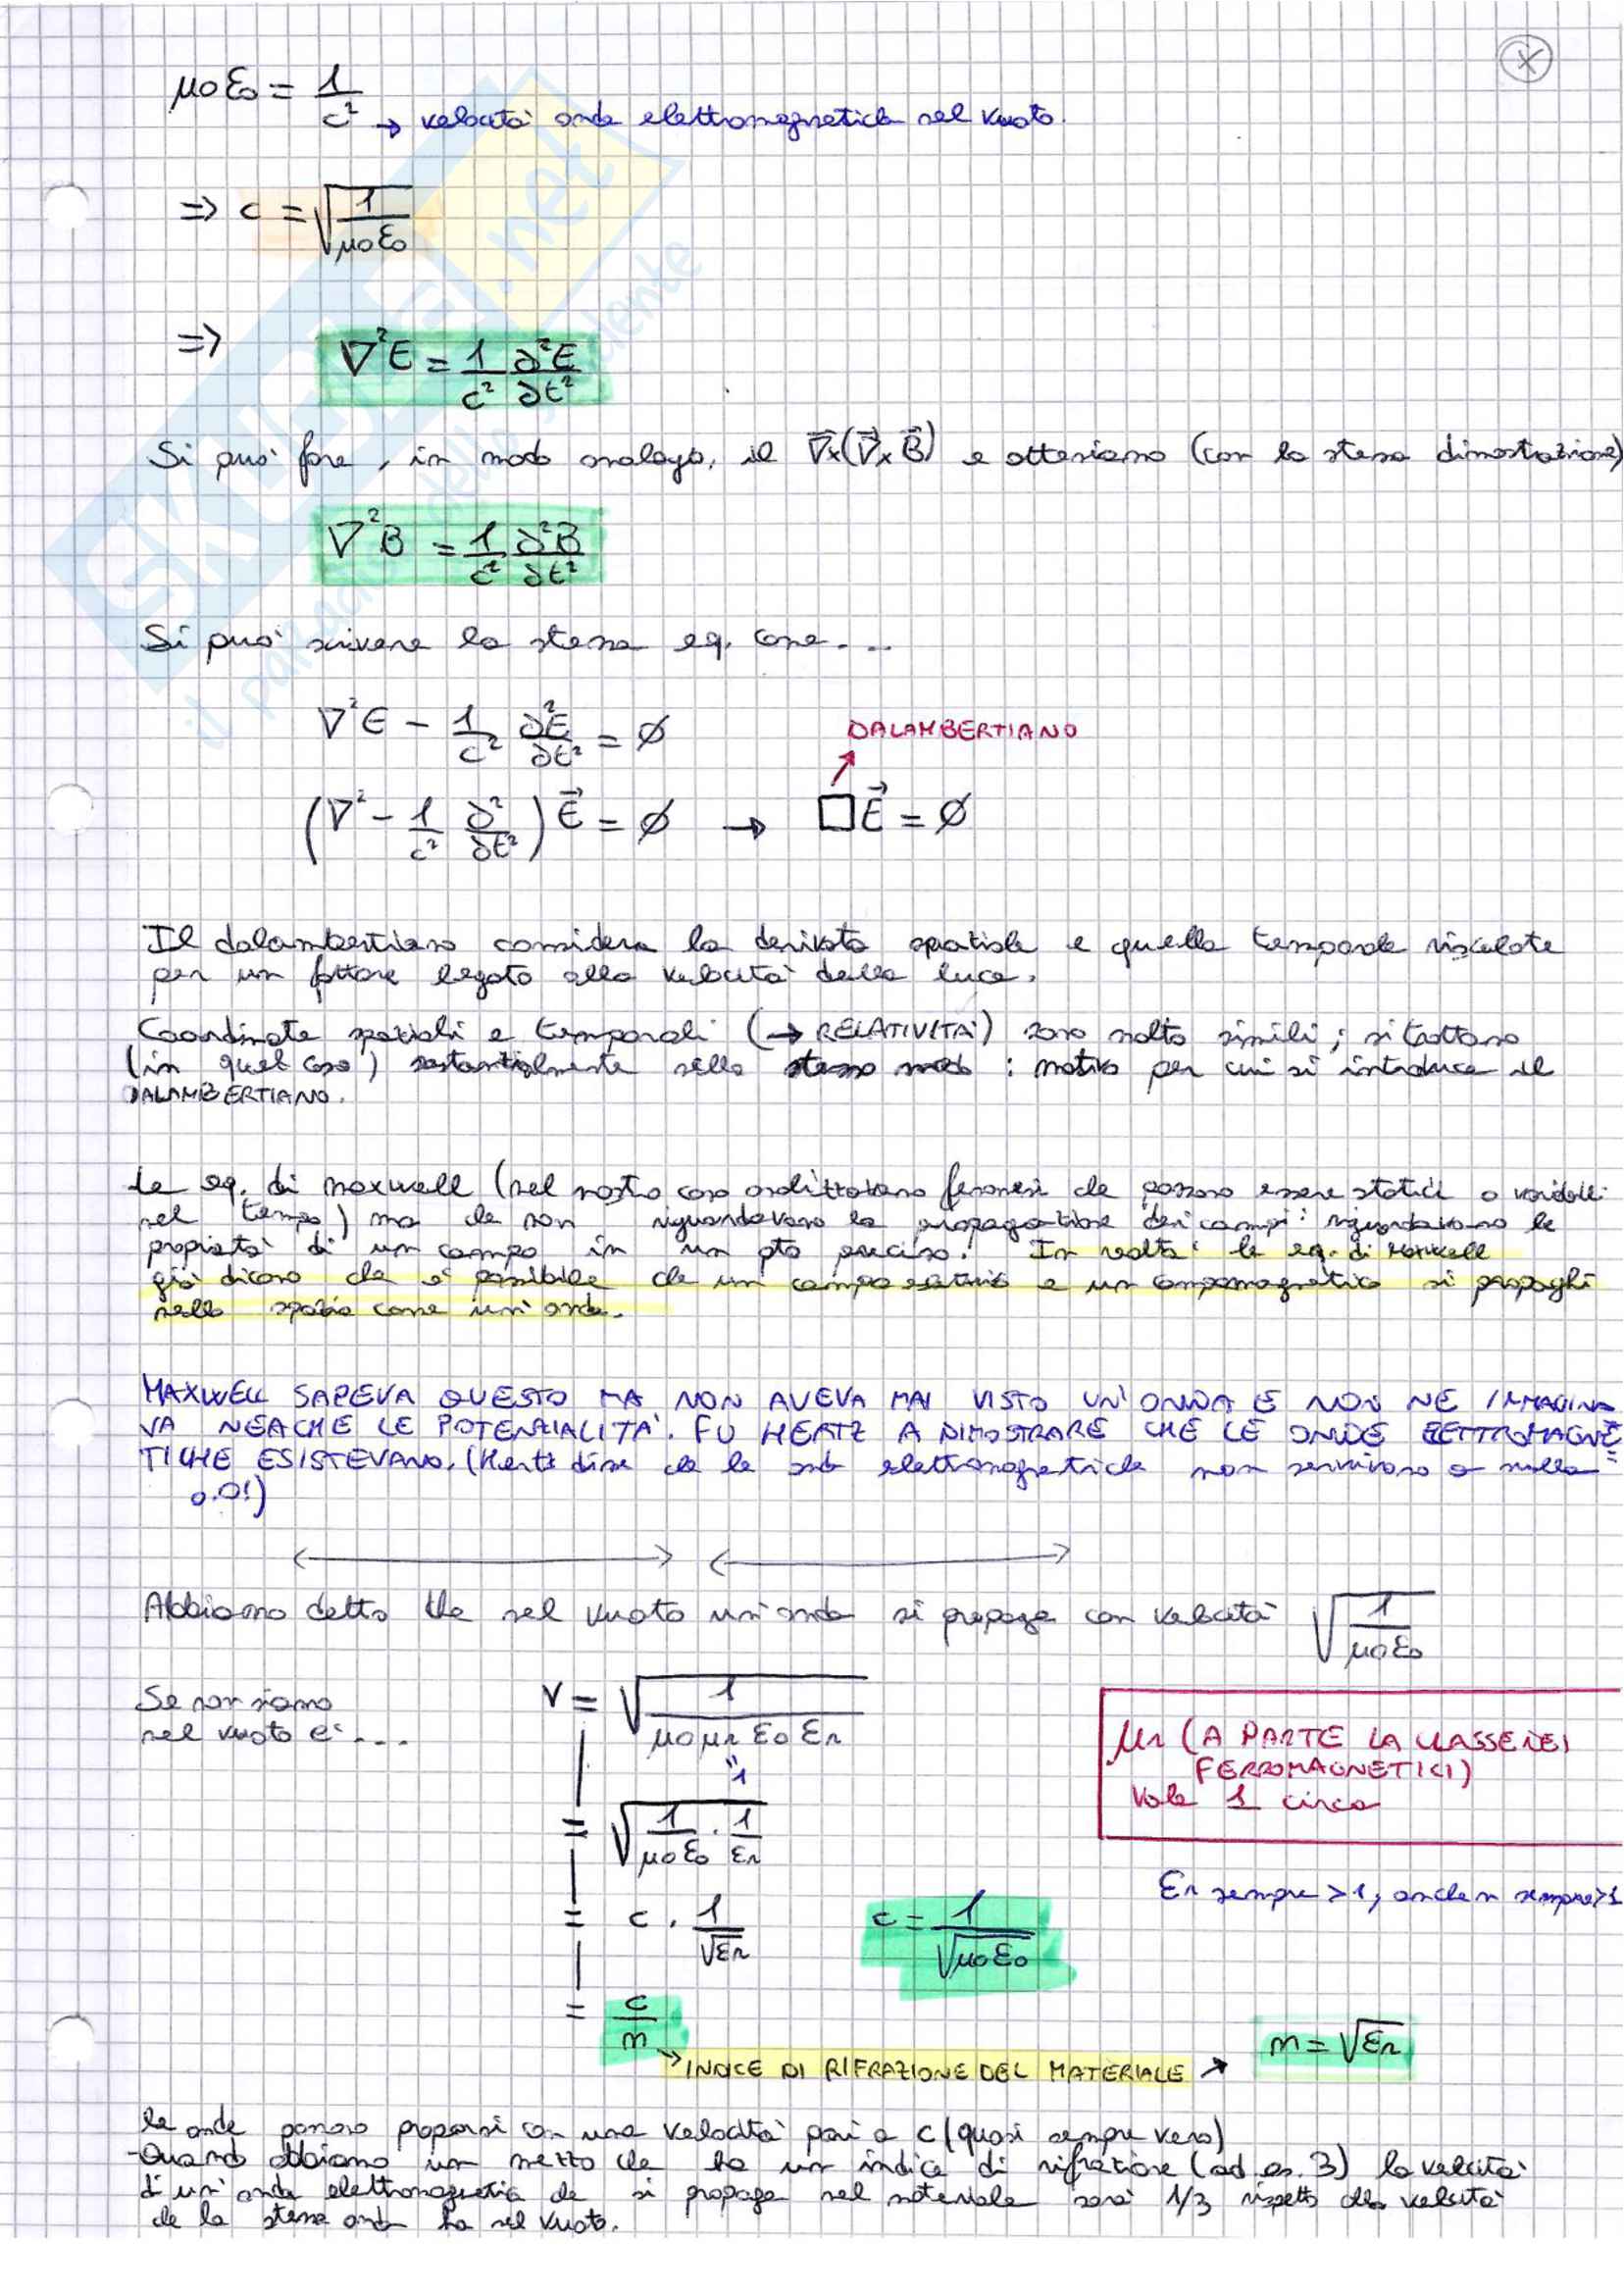 μ₀ε₀ = 1/c² → velocità onda elettromagnetica nel vuoto.
=> c = √(1/μ₀ε₀)
=> ∇²E = 1/c² ∂²E/∂t²
Si può fare, in modo analogo, il ∇⃗x(∇⃗x B⃗) e otteniamo (con la stessa dimostrazione)
∇²B = 1/c² ∂²B/∂t²
Si può scrivere la stessa eq. come...
∇²E - 1/c² ∂²E/∂t² = ∅
DALAMBERTIANO
(∇² - 1/c² ∂²/∂t²) E⃗ = ∅ → □E⃗ = ∅
Il dalambertiano considera la derivata spaziale e quella temporale riscalate
per un fattore legato alla velocità della luce.
Coordinate spaziali e temporali (→ RELATIVITÀ) sono molto simili; si trattano
(in quel caso) sostanzialmente nello stesso modo: motivo per cui si introduce il
DALAMBERTIANO.
Le eq. di Maxwell (nel nostro caso fenomeni che possono essere statici o variabili
nel tempo) ma che non riguardavano la propagazione dei campi: riguardavano le
proprietà di un campo in un pto preciso. In realtà le eq. di Maxwell
già dicono che è possibile che un campo elettrico e un campo magnetico si propaghi
nello spazio come un'onda.
MAXWELL SAPEVA QUESTO MA NON AVEVA MAI VISTO UN'ONDA E NON NE IMMAGINA
VA NEACHE LE POTENZIALITÀ. FU HERTZ A DIMOSTRARE CHE LE ONDE ELETTROMAGNE=
TICHE ESISTEVANO. (Hertz disse che le onde elettromagnetiche non servivano a nulla
o.O!)
Abbiamo detto che nel vuoto un'onda si propaga con velocità √(1/μ₀ε₀)
Se non siamo
nel vuoto è...
v = √(1/μ₀μr ε₀εr)
"1
μr (A PARTE LA CLASSE DEI
FERROMAGNETICI)
Vale 1 circa
= √(1/μ₀ε₀ · 1/εr)
εr sempre >1, anche n sempre >1
= c · 1/√εr
c = 1/√μ₀ε₀
= c/n
→ INDICE DI RIFRAZIONE DEL MATERIALE → n = √εr
le onde possono con una velocità pari a c (quasi sempre vero)
-Quando abbiamo un mezzo che ha un indice di rifrazione (ad es. 3) la velocità
di un'onda elettromagnetica che si propaga nel materiale sarà 1/3 rispetto alla velocità
che la stessa onda ha nel vuoto.
SKUOLA.net
il paradiso dello studente